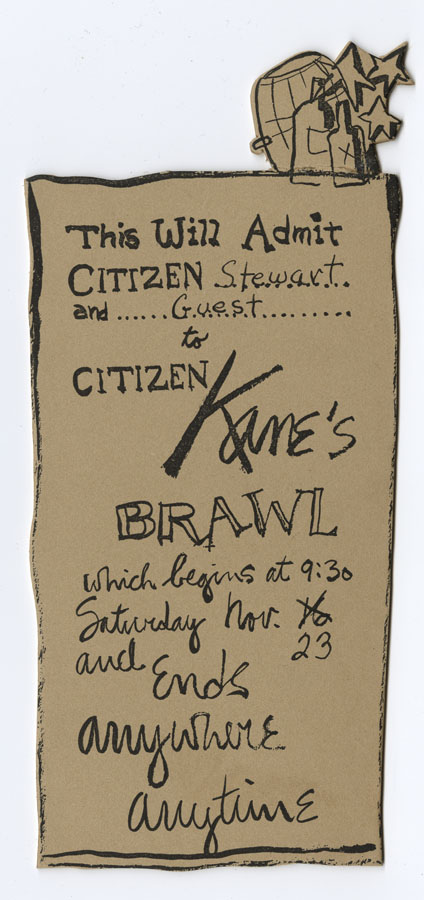 This Will Admit
CITIZEN Stewart..
and ......Guest.........
to
CITIZEN
Kane's
BRAWL
which begins at 9:30
Saturday Nov. 16
23
and Ends
anywhere
anytime